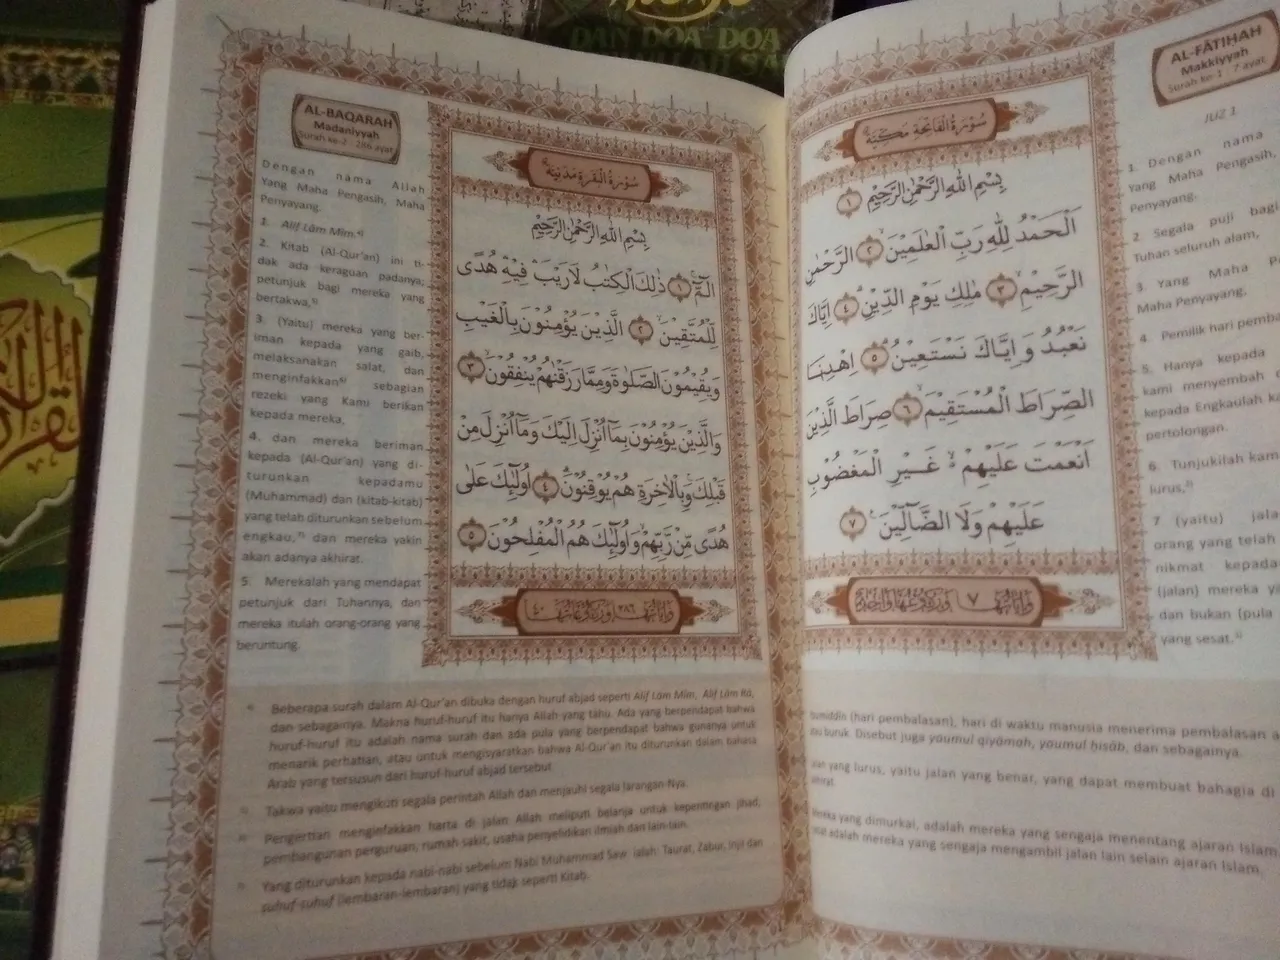 DAN DOA DOA
AL-FĀTIHAH
Makkiyyah
Surah ke-1 : 7 ayat
JUZ 1
سُوْرَةُ الْفَاتِحَةِ مَكِّيَّةٌ
بِسْمِ اللّٰهِ الرَّحْمٰنِ الرَّحِيْمِ ١
اَلْحَمْدُ لِلّٰهِ رَبِّ الْعٰلَمِيْنَۙ ٢ الرَّحْمٰنِ
الرَّحِيْمِۙ ٣ مٰلِكِ يَوْمِ الدِّيْنِۗ ٤ اِيَّاكَ
نَعْبُدُ وَاِيَّاكَ نَسْتَعِيْنُۗ ٥ اِهْدِنَا
الصِّرَاطَ الْمُسْتَقِيْمَۙ ٦ صِرَاطَ الَّذِيْنَ
اَنْعَمْتَ عَلَيْهِمْ ەۙ غَيْرِ الْمَغْضُوْبِ
عَلَيْهِمْ وَلَا الضَّاۤلِّيْنَ ٧
1. Dengan nama
Yang Maha Pengasih,
Penyayang.
2 Segala puji bagi
Tuhan seluruh alam,
3 Yang Maha
Maha Penyayang,
4. Pemilik hari
5. Hanya kepada
kami menyembah
kepada Engkaulah
pertolongan.
6 Tunjukilah
lurus,
7 (yaitu)
orang yang telah
nikmat
(jalan) mereka
dan bukan (pula
yang sesat.
(hari pembalasan), hari di waktu manusia menerima pembalasan
buruk. Disebut juga youmul qiyāmah, youmul ḥisāb, dan sebagainya.
yang lurus, yaitu jalan yang benar, yang dapat membuat bahagia di
yang dimurkai, adalah mereka yang sengaja menentang ajaran Islam.
adalah mereka yang sengaja mengambil jalan lain selain ajaran Islam.
AL-BAQARAH
Madaniyyah
Surah ke-2 : 286 ayat
سُوْرَةُ الْبَقَرَةِ مَدَنِيَّةٌ
بِسْمِ اللّٰهِ الرَّحْمٰنِ الرَّحِيْمِ
الۤمّۤۚ ١ ذٰلِكَ الْكِتٰبُ لَا رَيْبَۛ فِيْهِۛ هُدًى
لِّلْمُتَّقِيْنَۙ ٢ الَّذِيْنَ يُؤْمِنُوْنَ بِالْغَيْبِ
وَيُقِيْمُوْنَ الصَّلٰوةَ وَمِمَّا رَزَقْنٰهُمْ يُنْفِقُوْنَۙ ٣
وَالَّذِيْنَ يُؤْمِنُوْنَ بِمَآ اُنْزِلَ اِلَيْكَ وَمَآ اُنْزِلَ مِنْ
قَبْلِكَۚ وَبِالْاٰخِرَةِ هُمْ يُوْقِنُوْنَۗ ٤ اُولٰۤىِٕكَ عَلٰى
هُدًى مِّنْ رَّبِّهِمْۙ وَاُولٰۤىِٕكَ هُمُ الْمُفْلِحُوْنَ ٥
Dengan nama Allah
Yang Maha Pengasih, Maha
Penyayang.
1. Alif Lām Mīm.⁴⁾
2. Kitab (Al-Qur'an) ini ti-
dak ada keraguan padanya;
petunjuk bagi mereka yang
bertakwa,⁵⁾
3. (Yaitu) mereka yang ber-
iman kepada yang gaib,
melaksanakan salat, dan
menginfakkan⁶⁾ sebagian
rezeki yang Kami berikan
kepada mereka,
4. dan mereka beriman
kepada (Al-Qur'an) yang di-
turunkan kepadamu
(Muhammad) dan (kitab-kitab)
yang telah diturunkan sebelum
engkau,⁷⁾ dan mereka yakin
akan adanya akhirat.
5. Merekalah yang mendapat
petunjuk dari Tuhannya, dan
mereka itulah orang-orang yang
beruntung.
Beberapa surah dalam Al-Qur'an dibuka dengan huruf abjad seperti Alif Lām Mīm, Alif Lām Rā,
dan sebagainya. Makna huruf-huruf itu hanya Allah yang tahu. Ada yang berpendapat bahwa
huruf-huruf itu adalah nama surah dan ada pula yang berpendapat bahwa gunanya untuk
menarik perhatian, atau untuk mengisyaratkan bahwa Al-Qur'an itu diturunkan dalam bahasa
Arab yang tersusun dari huruf-huruf abjad tersebut.
Takwa yaitu mengikuti segala perintah Allah dan menjauhi segala larangan-Nya.
Pengertian menginfakkan harta di jalan Allah meliputi belanja untuk kepentingan jihad,
pembangunan perguruan, rumah sakit, usaha penyelidikan ilmiah dan lain-lain.
Yang diturunkan kepada nabi-nabi sebelum Nabi Muhammad Saw. ialah: Taurat, Zabur, Injil dan
suhuf-suhuf (lembaran-lembaran) yang tidak seperti Kitab.